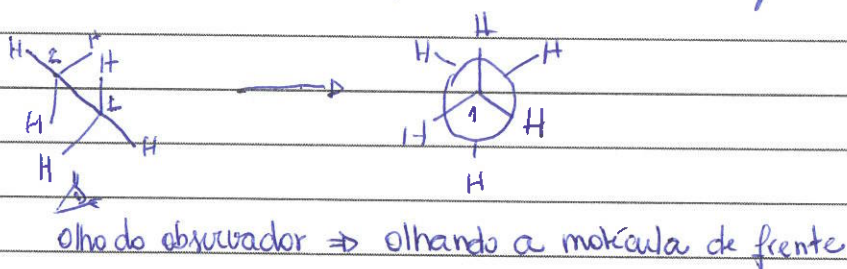 H
H 2 H H H H
1
H H 1 H H
H H
H
Olho do observador ⇒ olhando a molécula de frente